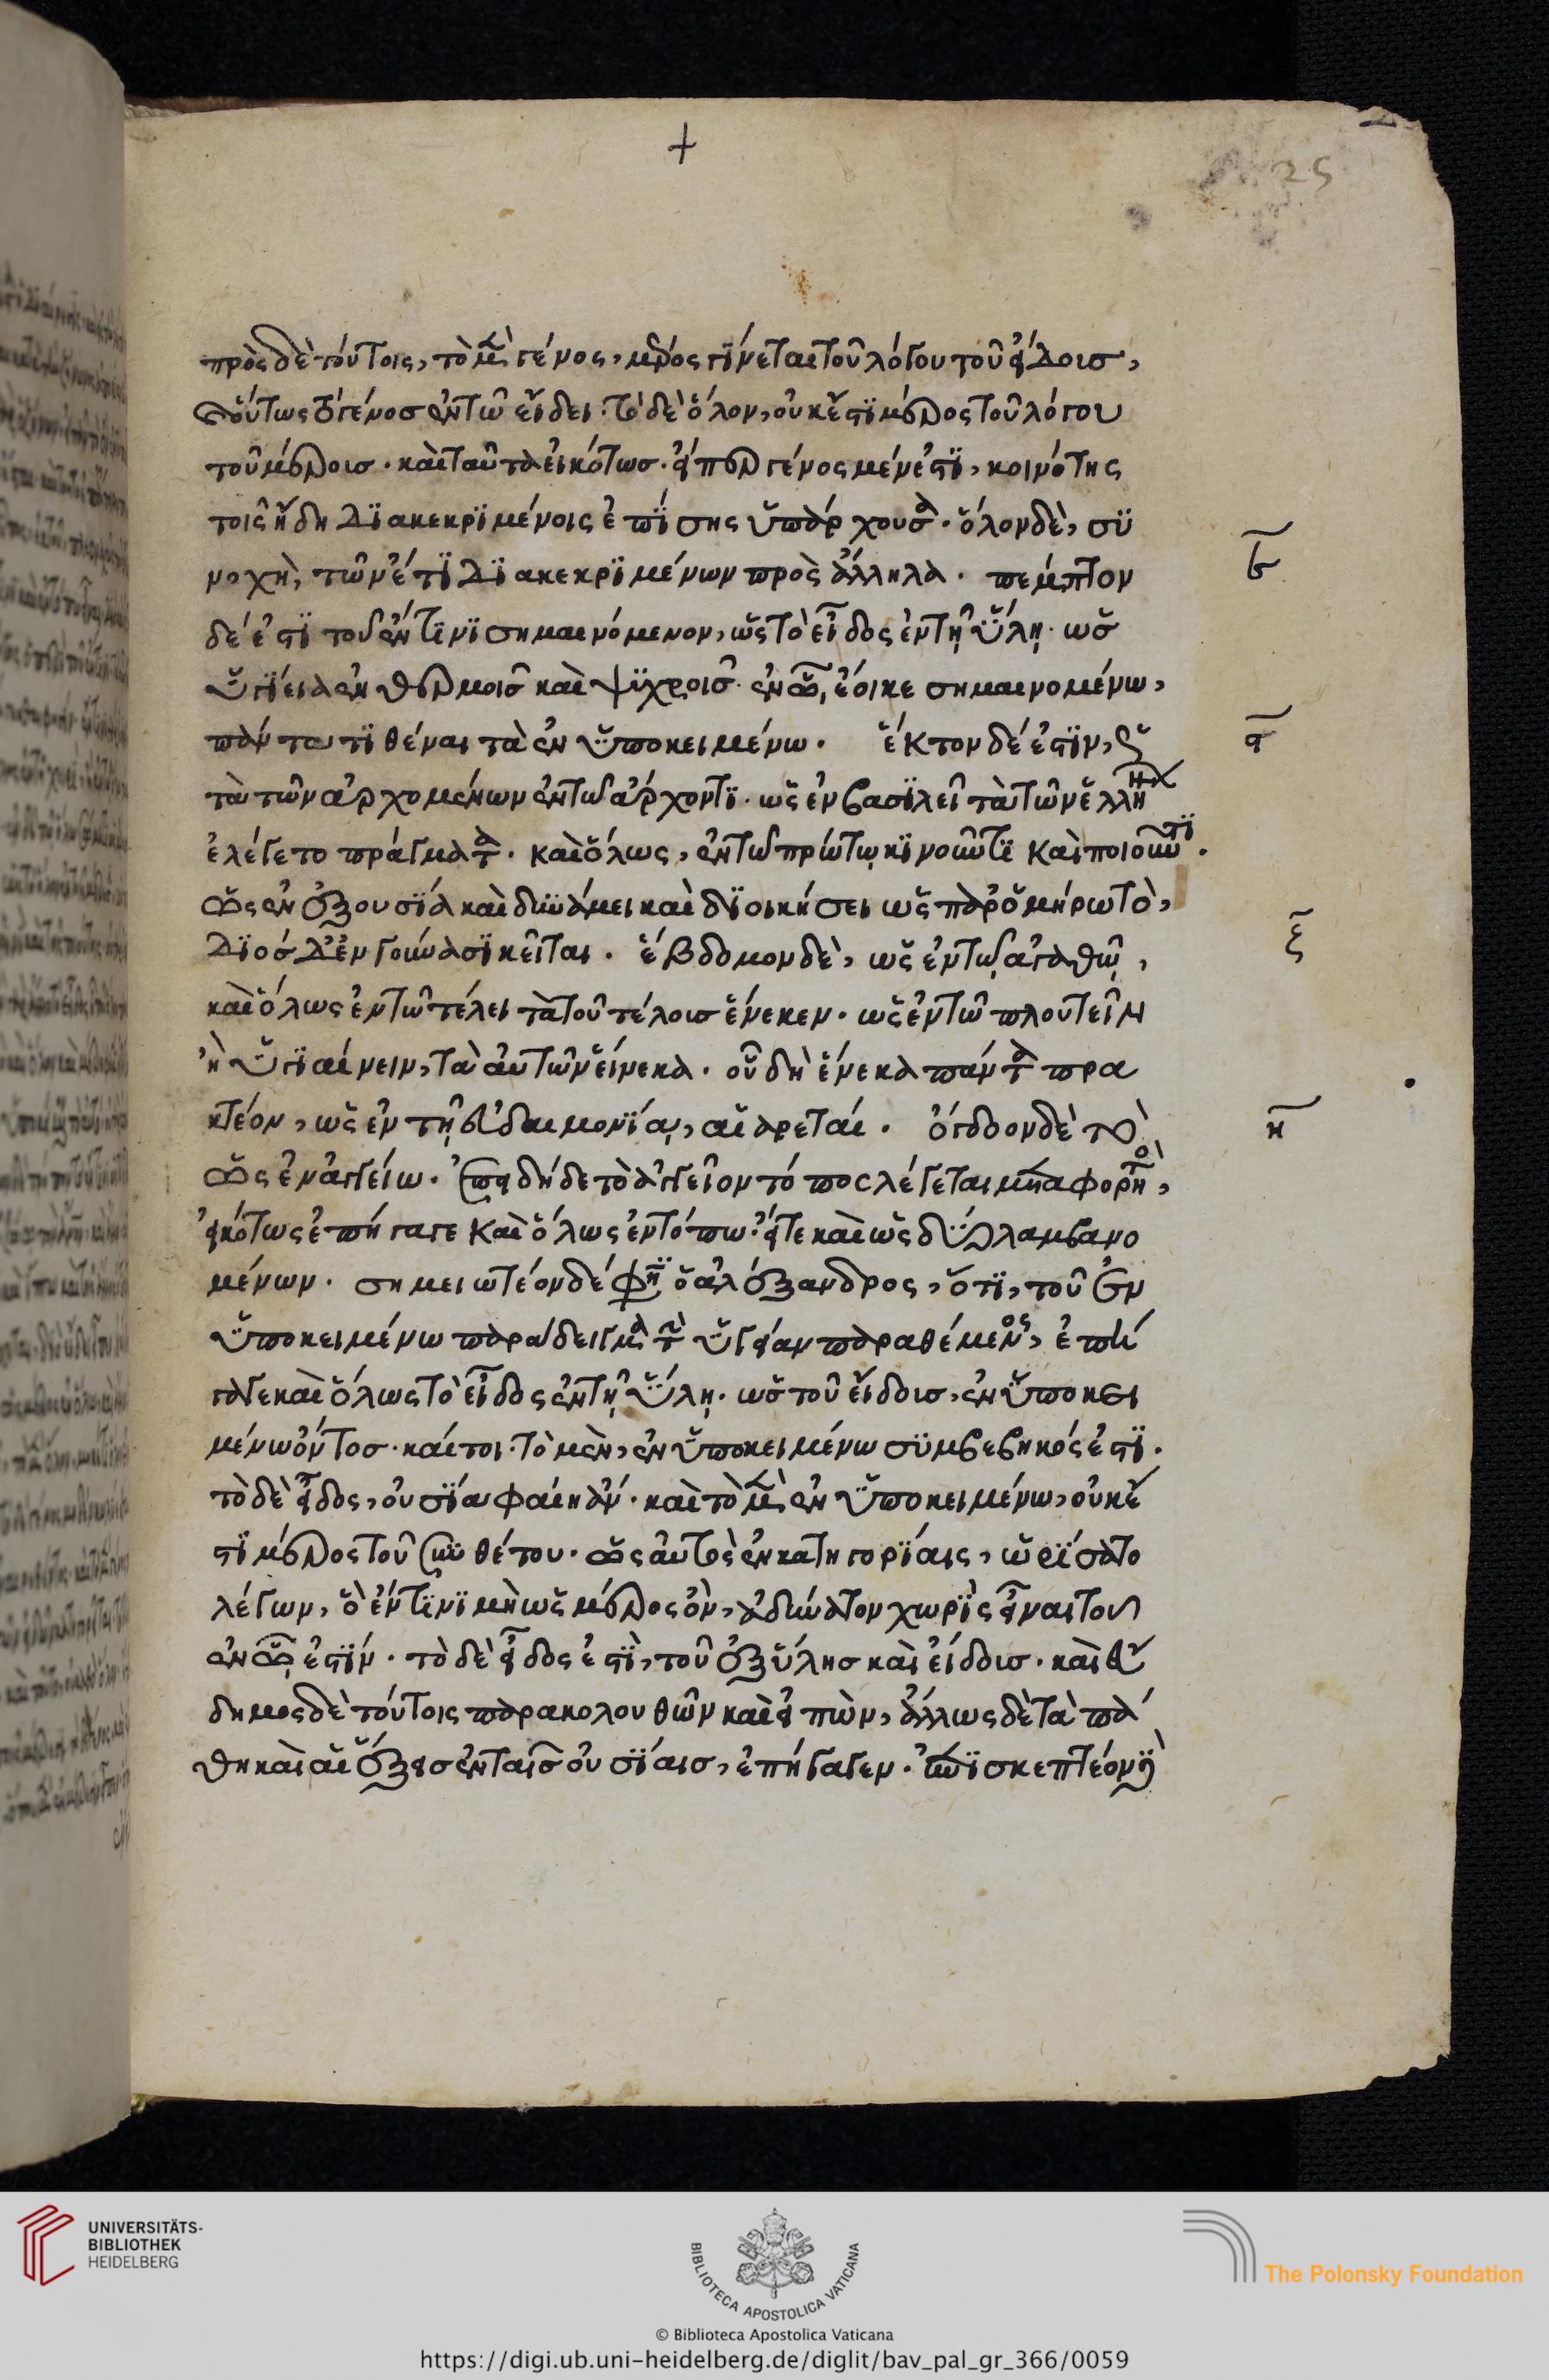 +
25
πρὸς δὲ τούτοις, τὸ μὲν γένος, μέρος γίνεται τοῦ λόγου τοῦ εἴδους,
οὕτως τὸ γένος ἐν τῶ εἴδει. τὸ δὲ ὅλον, οὐκ ἔστι μέρος τοῦ λόγου
τοῦ μέρους. καὶ ταῦτα εἰκότως. εἴπερ γένος μέν ἐστι, κοινότης
τοῖς ἤδη διακεκριμένοις ἐπίσης ὑπάρχουσα. ὅλον δὲ, συ
νοχὴ, τῶν ἔτι διακεκριμένων πρὸς ἄλληλα. πέμπτον
ε̄
δέ ἐστι τοῦ ἔν τινι σημαινόμενον, ὡς τὸ εἶδος ἐν τῆ ὕλη. ὡς
ὑγίεια ἐν θερμοῖς καὶ ψυχροῖς. ἐν ὧ, ἔοικε σημαινομένω,
πάντα τιθέναι τὰ ἐν ὑποκειμένω. ἕκτον δέ ἐστιν, ὡς
ϛ̄
τὰ τῶν ἀρχομένων ἐν τῶ ἄρχοντι. ὡς ἐν βασιλεῖ τὰ τῶν ἑλλήνων
ἐλέγετο πράγματα. καὶ ὅλως, ἐν τῶ πρώτω κινοῦντι καὶ ποιοῦντι.
ὡς ἐν ἐξουσία καὶ δυνάμει καὶ διοικήσει ὡς παρ' ὁμήρω τὸ,
διὸς δ' ἐν γούνασι κεῖται. ἕβδομον δὲ, ὡς ἐν τῶ ἀγαθῶ,
ζ̄
καὶ ὅλως ἐν τῶ τέλει τὰ τοῦ τέλους ἕνεκεν. ὡς ἐν τῶ πλουτεῖν
ἢ ὑγιαίνειν, τὰ αὐτῶν εἵνεκα. οὗ δὴ ἕνεκα πάντα πρα
κτέον, ὡς ἐν τῆ εὐδαιμονία, αἱρεταί. ὄγδοον δὲ τὸ
η̄
ὡς ἐν ἀγγείω. ἐπειδὴ δὲ τὸ ἀγγεῖον τόπος λέγεται μεταφορητὸς,
εἰκότως ἐπήγαγε καὶ ὅλως ἐν τόπω. εἴτε καὶ ὡς διαλαμβανο
μένων. σημειωτέον δέ φησιν ὁ ἀλέξανδρος, ὅτι, τοῦ ἐν
ὑποκειμένω παράδειγμα τὴν ὑγίειαν παραθέμενος, ἐπή
γαγε καὶ ὅλως τὸ εἶδος ἐν τῆ ὕλη. ὡς τοῦ εἴδους, ἐν ὑποκει
μένω ὄντος. καίτοι τὸ μὲν, ἐν ὑποκειμένω συμβεβηκός ἐστι.
τὸ δὲ εἶδος, οὐσία φαίη ἄν. καὶ τὸ μὲν ἐν ὑποκειμένω, οὐκ ἔ
στι μέρος τοῦ συνθέτου. ὡς αὐτὸς ἐν κατηγορίαις, ὡρίσατο
λέγων, ὃ ἔν τινι μὴ ὡς μέρος ὂν, ἀδύνατον χωρὶς εἶναι τοῦ
ἐν ὧ ἐστίν. τὸ δὲ εἶδος ἐστὶ, τοῦ ἐξ ὕλης καὶ εἴδους. καὶ εὔ
δημος δὲ τούτοις παρακολουθῶν καὶ εἰπὼν, ἄλλως δὲ τὰ πά
θη καὶ αἱ ἕξεις ἐν ταῖς οὐσίαις, ἐπήγαγεν. ἐπισκεπτέον εἰ
UNIVERSITÄTS-
BIBLIOTHEK
HEIDELBERG
BIBLIOTECA APOSTOLICA VATICANA
The Polonsky Foundation
© Biblioteca Apostolica Vaticana
https://digi.ub.uni-heidelberg.de/diglit/bav_pal_gr_366/0059